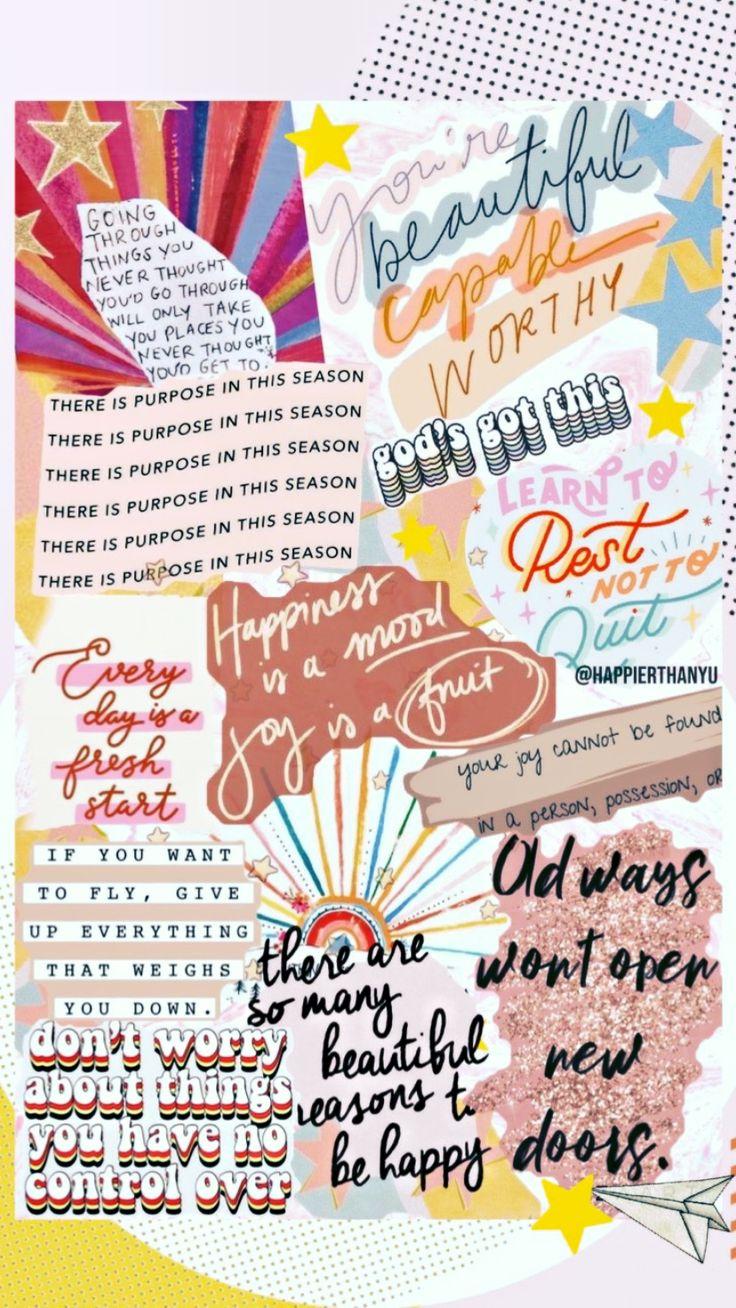 GOING
THROUGH
THINGS YOU
NEVER THOUGHT
YOU'D GO THROUGH
WILL ONLY TAKE
YOU PLACES YOU
NEVER THOUGHT
YOU'D GET TO.
you're
beautiful
capable
WORTHY
THERE IS PURPOSE IN THIS SEASON
THERE IS PURPOSE IN THIS SEASON
THERE IS PURPOSE IN THIS SEASON
THERE IS PURPOSE IN THIS SEASON
THERE IS PURPOSE IN THIS SEASON
THERE IS PURPOSE IN THIS SEASON
god's got this
LEARN TO
Rest
NOT TO
Quit
@HAPPIERTHANYU
Happiness
is a mood
joy is a fruit
Every
day is a
fresh
start
your joy cannot be found
in a person, possession, or
IF YOU WANT
TO FLY, GIVE
UP EVERYTHING
THAT WEIGHS
YOU DOWN.
there are
so many
beautiful
reasons t
be happy
Old ways
wont open
new
doors.
don't worry
about things
you have no
control over